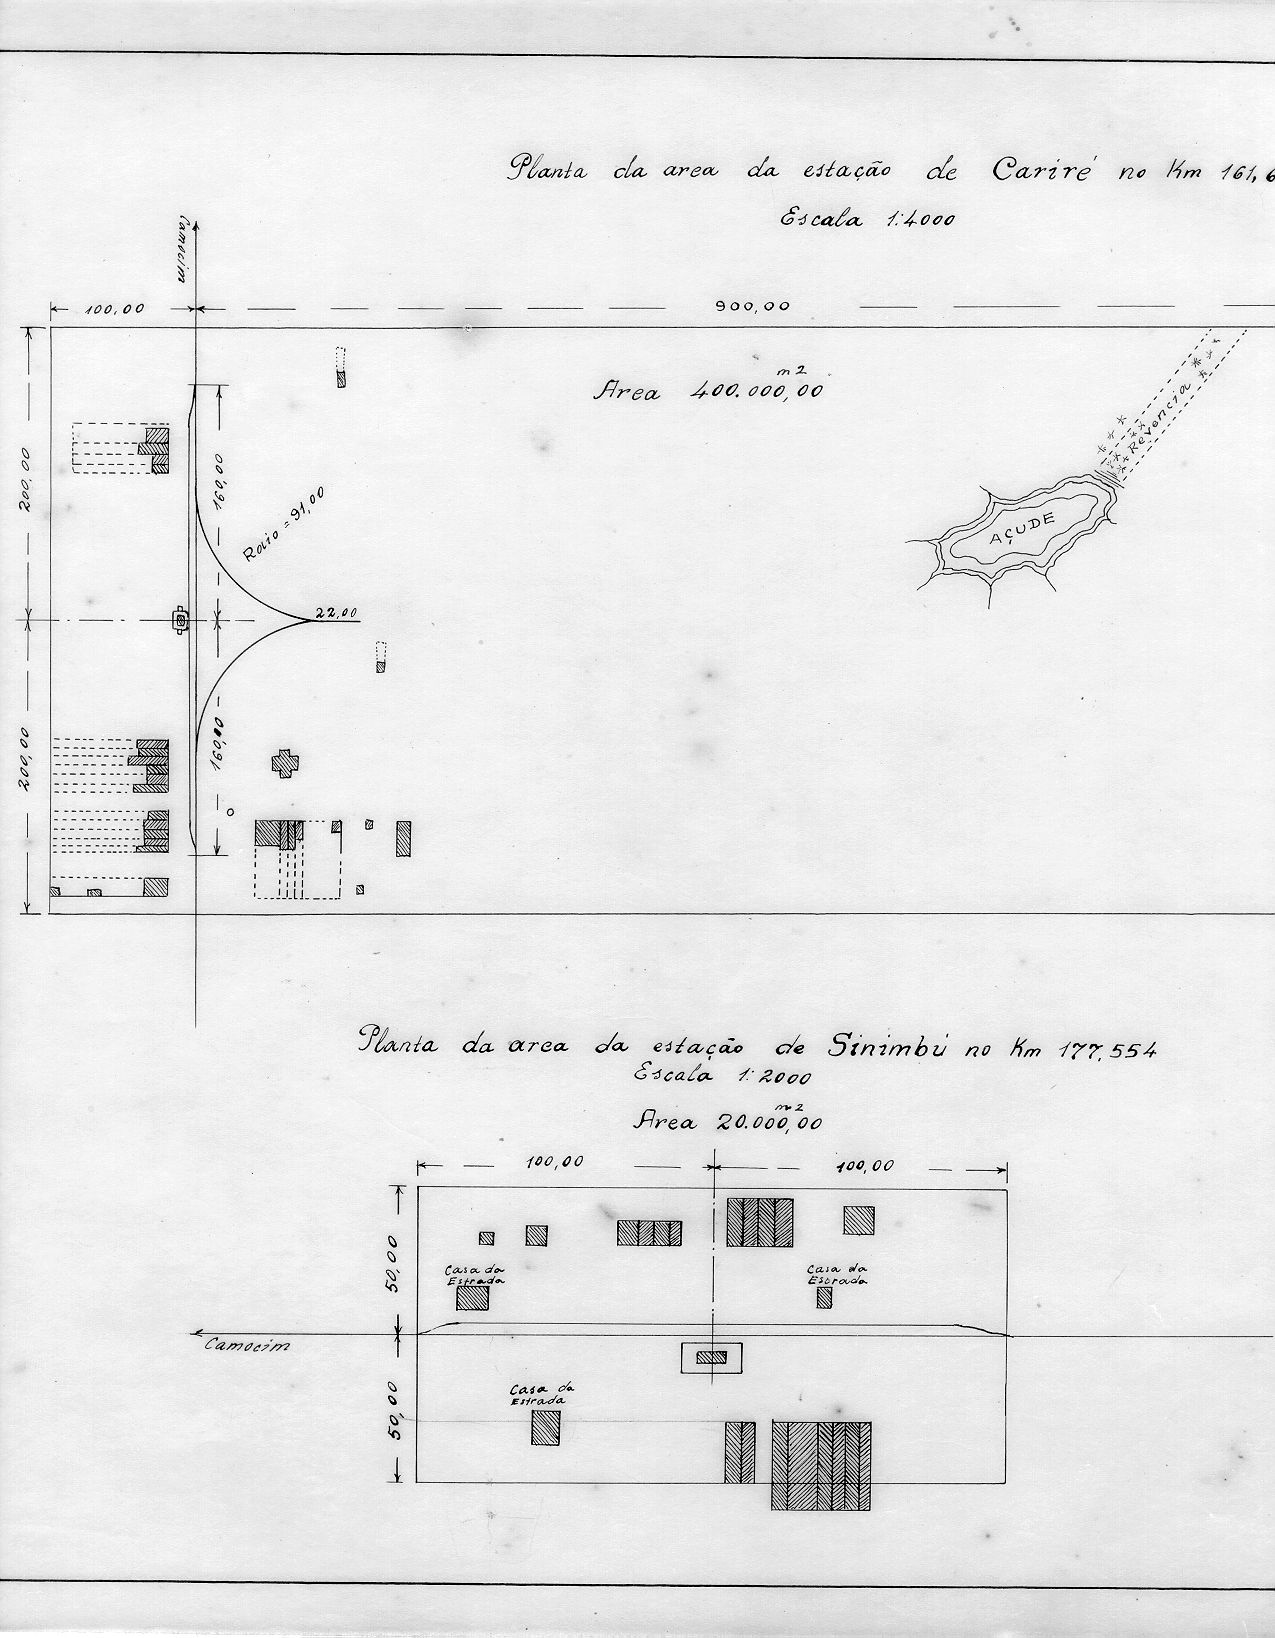 Planta da area da estação de Cariré no Km 161,6
Escala 1:4000
Camocim
100,00
900,00
Area 400.000,00 m2
200,00
160,00
Raio = 91,00
Revencia
AÇUDE
22,00
200,00
160,00
Planta da area da estação de Sinimbú no Km 177,554
Escala 1:2000
Area 20.000,00 m2
100,00
100,00
50,00
Casa da
Estrada
Casa da
Estrada
Camocim
50,00
Casa da
Estrada